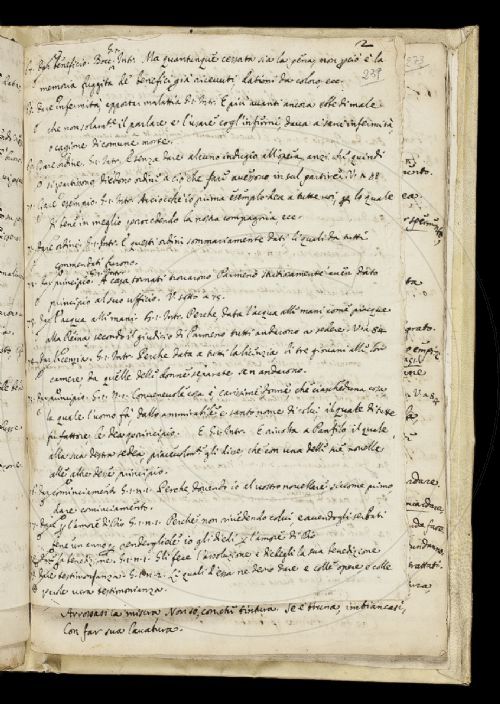 2
239
dar beneficio. Bocc. Intr. Ma quantunque cessata sia la pena, non perciò è la
memoria fuggita de benefici già ricevuti dationi da coloro ecc.
dare infermità apporta malattia G. 1. Intr. E più avanti ancora ebbe di male
che non solamte il parlare e l'usare cogl'infermi dava a sani infermità
o cagione di comune morte.
Dare ordine. G. 1. Intr. E senza dare alcuno indugio all'opera, anzi che quindi
si partissono diedono ordini a ciò che fare avessono in sul partire. V. n 48
dare esempio. G. 1. Intr. Acciocchè io prima esemplo dea a tutte voi, per lo quale
di bene in meglio procedendo la nostra compagnia ecc.
dare ordini. G. 1. Intr. E questi ordini sommariamente dati li quali da tutti
commendati furono.
dar principio. G. 1. Intr. A casa tornati trovarono Parmeno studiosamente aver dato
principio al suo uffici. V. sotto a 15.
dar l'acqua alle mani. G. 1. Intr. Perchè data l'acqua alle mani come piacque
alla Reina secondo il giudicio di Parmeno tutti andarono a sedere. V. a 84
dar licenzia. G. 1. Intr. Perchè data a tutti la licenzia li tre giovani alle lor
camere da quelle delle donne separate se n'andarono.
dar principio. G. 1. N. 1. Convenevole cosa è carissime donne che ciascheduna cosa
la quale l'uomo fa, dallo ammirabile e santo nome di colui il quale di tutte
fu fattore le dea principio. E G. 1. Intr. E rivolta a Panfilo il quale
alla sua destra sedea piacevolmte gli disse, che con una delle sue novelle
all'altre desse principio.
dar cominciamento G. 1. n. 1. Perchè dovendo io al vostro novellare siccome primo
dare cominciamento.
dare per l'amore di Dio G. 1. n. 1. Perchè non rivedendo colui e avendogli serbati
bene un anno, per rendergliele io gli diedi per l'amore di Dio
dar la benedizione. G. 1. n. 1. Gli fece l'assoluzione e diedegli la sua benedizione
dare testimonianza. G. 1. n. 2. Li quali d'essa ne deono dare e colle opere e colle
parole vera testimonianza.
Arrossasi la misera Non so, con che tintura. Se è bruna, imbiancasi,
Con far sua lavatura.